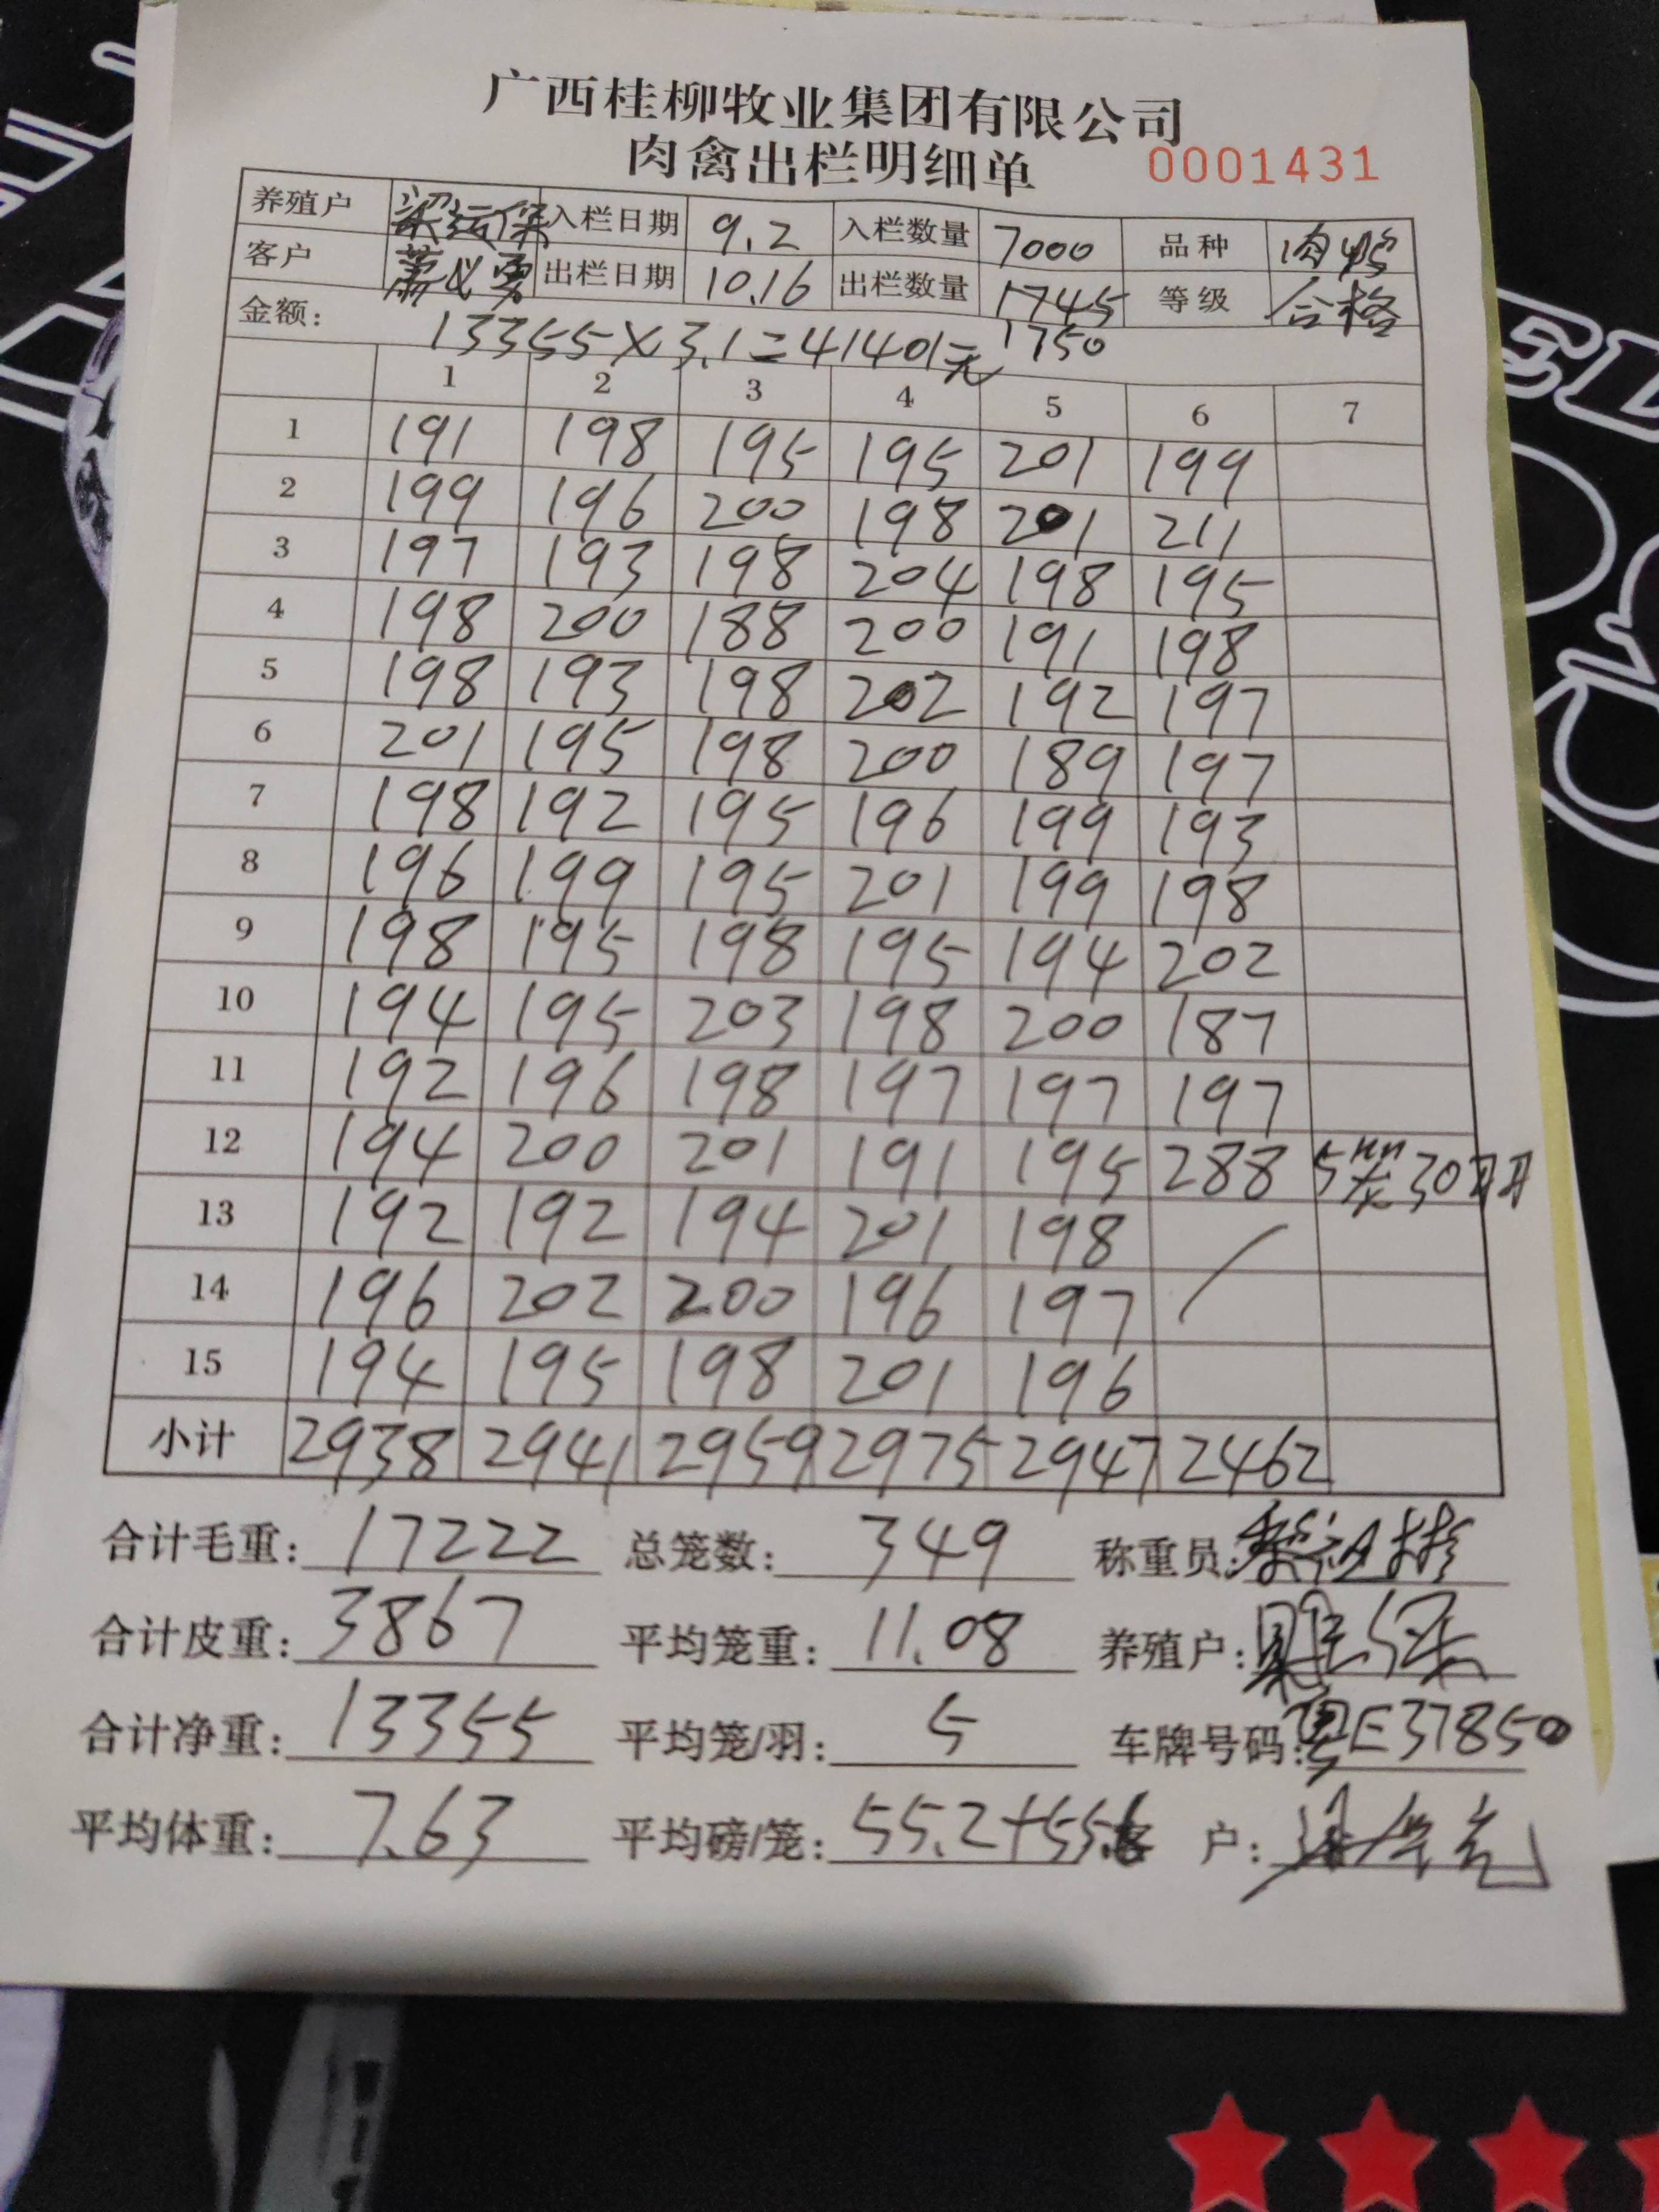 广西桂柳牧业集团有限公司
肉禽出栏明细单 0001431
养殖户 梁运保 入栏日期 9.2 入栏数量 7000 品种 肉鸭
客户 萧必勇 出栏日期 10.16 出栏数量 1745 等级 合格
金额: 13355×3.1=41401元 1750
1 2 3 4 5 6 7
1 191 198 195 195 201 199
2 199 196 200 198 201 211
3 197 193 198 204 198 195
4 198 200 188 200 191 198
5 198 193 198 202 192 197
6 201 195 198 200 189 197
7 198 192 195 196 199 193
8 196 199 195 201 199 198
9 198 195 198 195 194 202
10 194 195 203 198 200 187
11 192 196 198 197 197 197
12 194 200 201 191 195 288 30
13 192 192 194 201 198
14 196 202 200 196 197
15 194 195 198 201 196
小计 2938 2941 2959 2975 2947 2462
合计毛重: 17222 总笼数: 349 称重员:
合计皮重: 3867 平均笼重: 11.08 养殖户: 梁运保
合计净重: 13355 平均笼/羽: 5 车牌号码: 粤E37850
平均体重: 7.63 平均磅/笼: 55.2+55.6 客户: